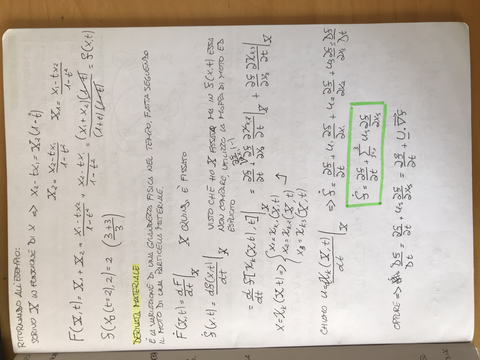 RITORNANDO ALL'ESEMPIO:
SCRIVO X IN FUNZIONE DI x => x₂ - tx₁ = X₂(1-t²) X₂ = (x₂ - tx₁)/(1-t²) X₁ = (x₁ - tx₂)/(1-t²)
F(X,t) = X₁ + X₂ = (x₁ - tx₂)/(1-t²) + (x₂ - tx₁)/(1-t²) = (x₁+x₂)(1-t)/((1+t)(1-t)) = f(x,t)
f(x_p(t=2),2) = 2 ((3+3)/3)
DERIVATA MATERIALE
È LA VARIAZIONE DI UNA GRANDEZZA FISICA NEL TEMPO, FATTA SEGUENDO
IL MOTO DI UNA PARTICELLA MATERIALE.
Ḟ(X,t) = dF/dt |X X QUINDI È FISSATO
ḟ(x,t) = df(x,t)/dt |X VISTO CHE HO X FISSATO MA IN f(x,t) ESSA
NON COMPARE UTILIZZO LA MAPPA DI MOTO ED
ESPLICITO
= d/dt f[χ_k(X,t),t] |X = ∂f/∂t + ∂f/∂x₂ ∂χ_{k2}/∂t |X + ∂f/∂x₃ ∂χ_{k3}/∂t |X
x = χ_k(X,t) => { x₁ = χ_{k1}(X,t)
x₂ = χ_{k2}(X,t)
x₃ = χ_{k3}(X,t)
CHIAMO u = dχ_k(X,t)/dt |X => ḟ = ∂f/∂t + u₁ ∂f/∂x₁ + u₂ ∂f/∂x₂ + u₃ ∂f/∂x₃ = Df/Dt
ḟ = ∂f/∂t + Σ³ᵢ₌₁ uᵢ ∂f/∂xᵢ
OPPURE => Df/Dt = ∂f/∂t + uᵢ ∂f/∂xᵢ = ∂f/∂t + u·∇f